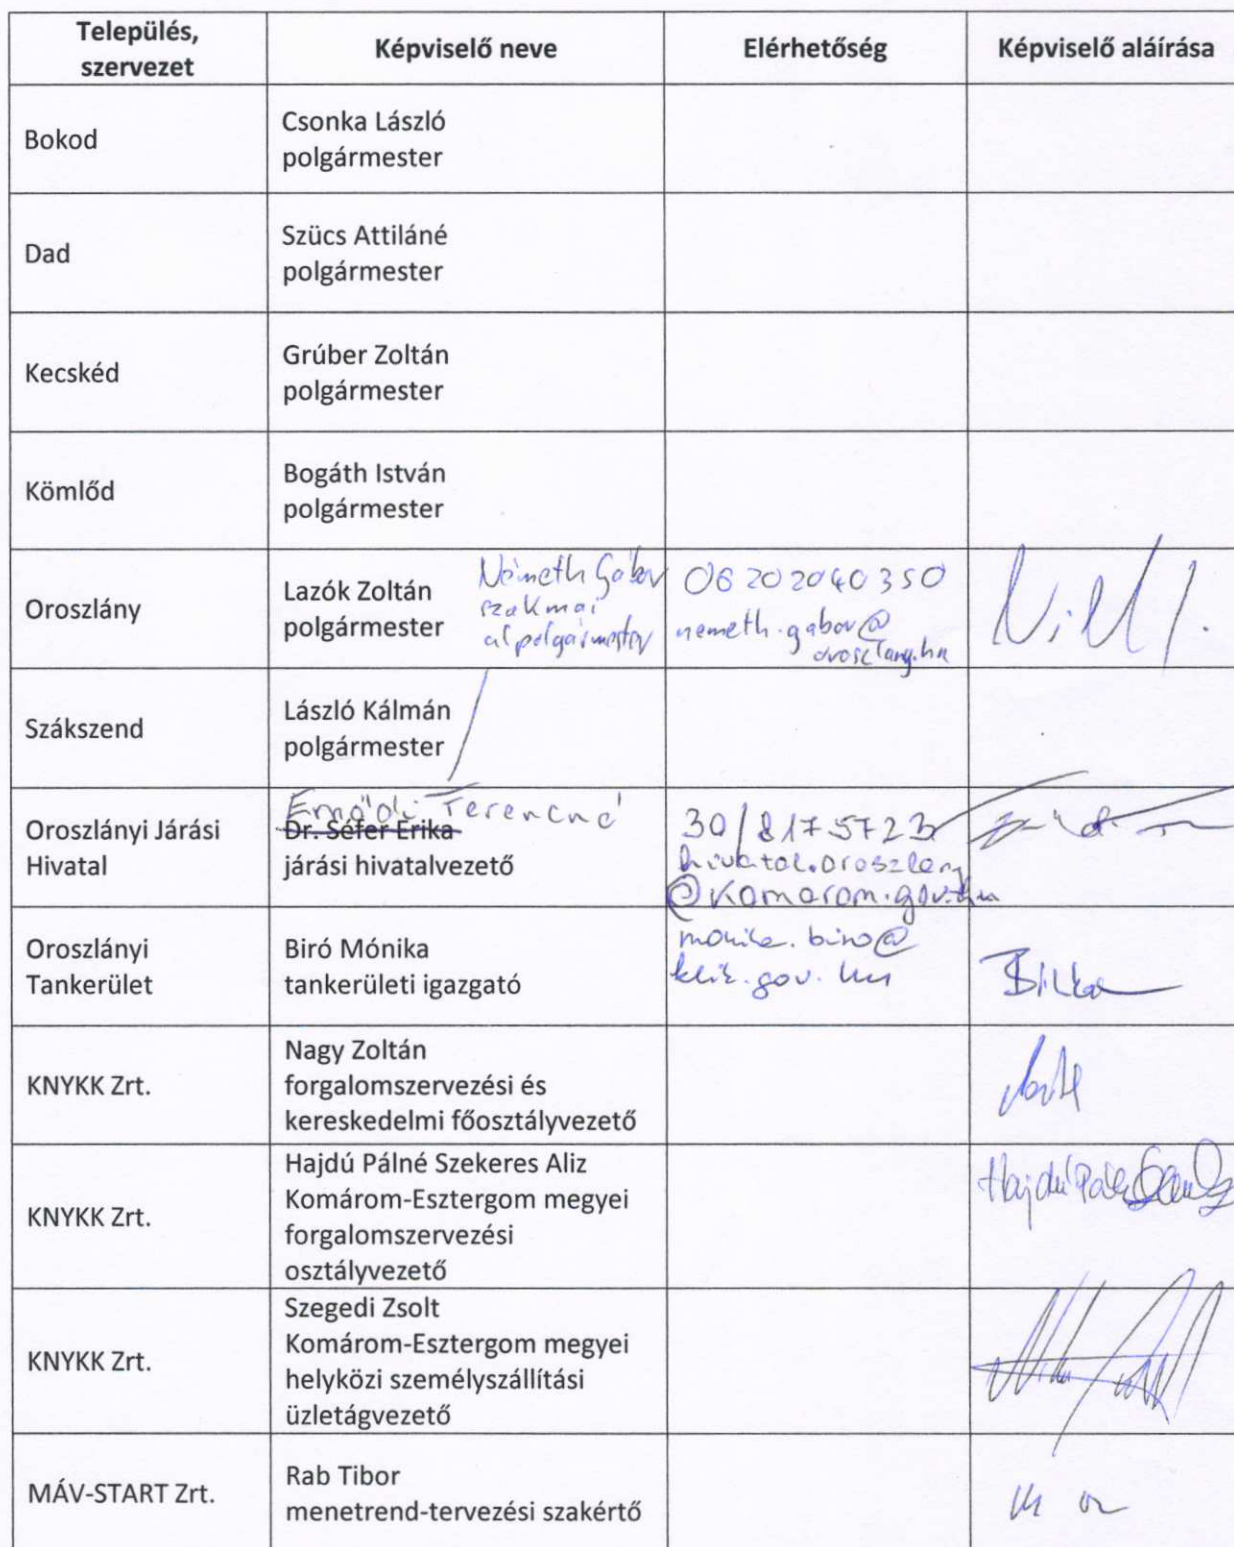 Település,
szervezet
Képviselő neve
Elérhetőség
Képviselő aláírása
Bokod
Csonka László
polgármester
Dad
Szücs Attiláné
polgármester
Kecskéd
Grúber Zoltán
polgármester
Kömlőd
Bogáth István
polgármester
Oroszlány
Lazók Zoltán
polgármester
Németh Gábor
szakmai
alpolgármester
06202040350
nemeth.gabor@
oroszlany.hu
Szákszend
László Kálmán
polgármester
Oroszlányi Járási
Hivatal
Ernődi Ferencné
Dr. Séfer Erika
járási hivatalvezető
30/8175723
hivatal.oroszlany
@komarom.gov.hu
Oroszlányi
Tankerület
Biró Mónika
tankerületi igazgató
monika.biro@
klik.gov.hu
KNYKK Zrt.
Nagy Zoltán
forgalomszervezési és
kereskedelmi főosztályvezető
KNYKK Zrt.
Hajdú Pálné Szekeres Aliz
Komárom-Esztergom megyei
forgalomszervezési
osztályvezető
KNYKK Zrt.
Szegedi Zsolt
Komárom-Esztergom megyei
helyközi személyszállítási
üzletágvezető
MÁV-START Zrt.
Rab Tibor
menetrend-tervezési szakértő